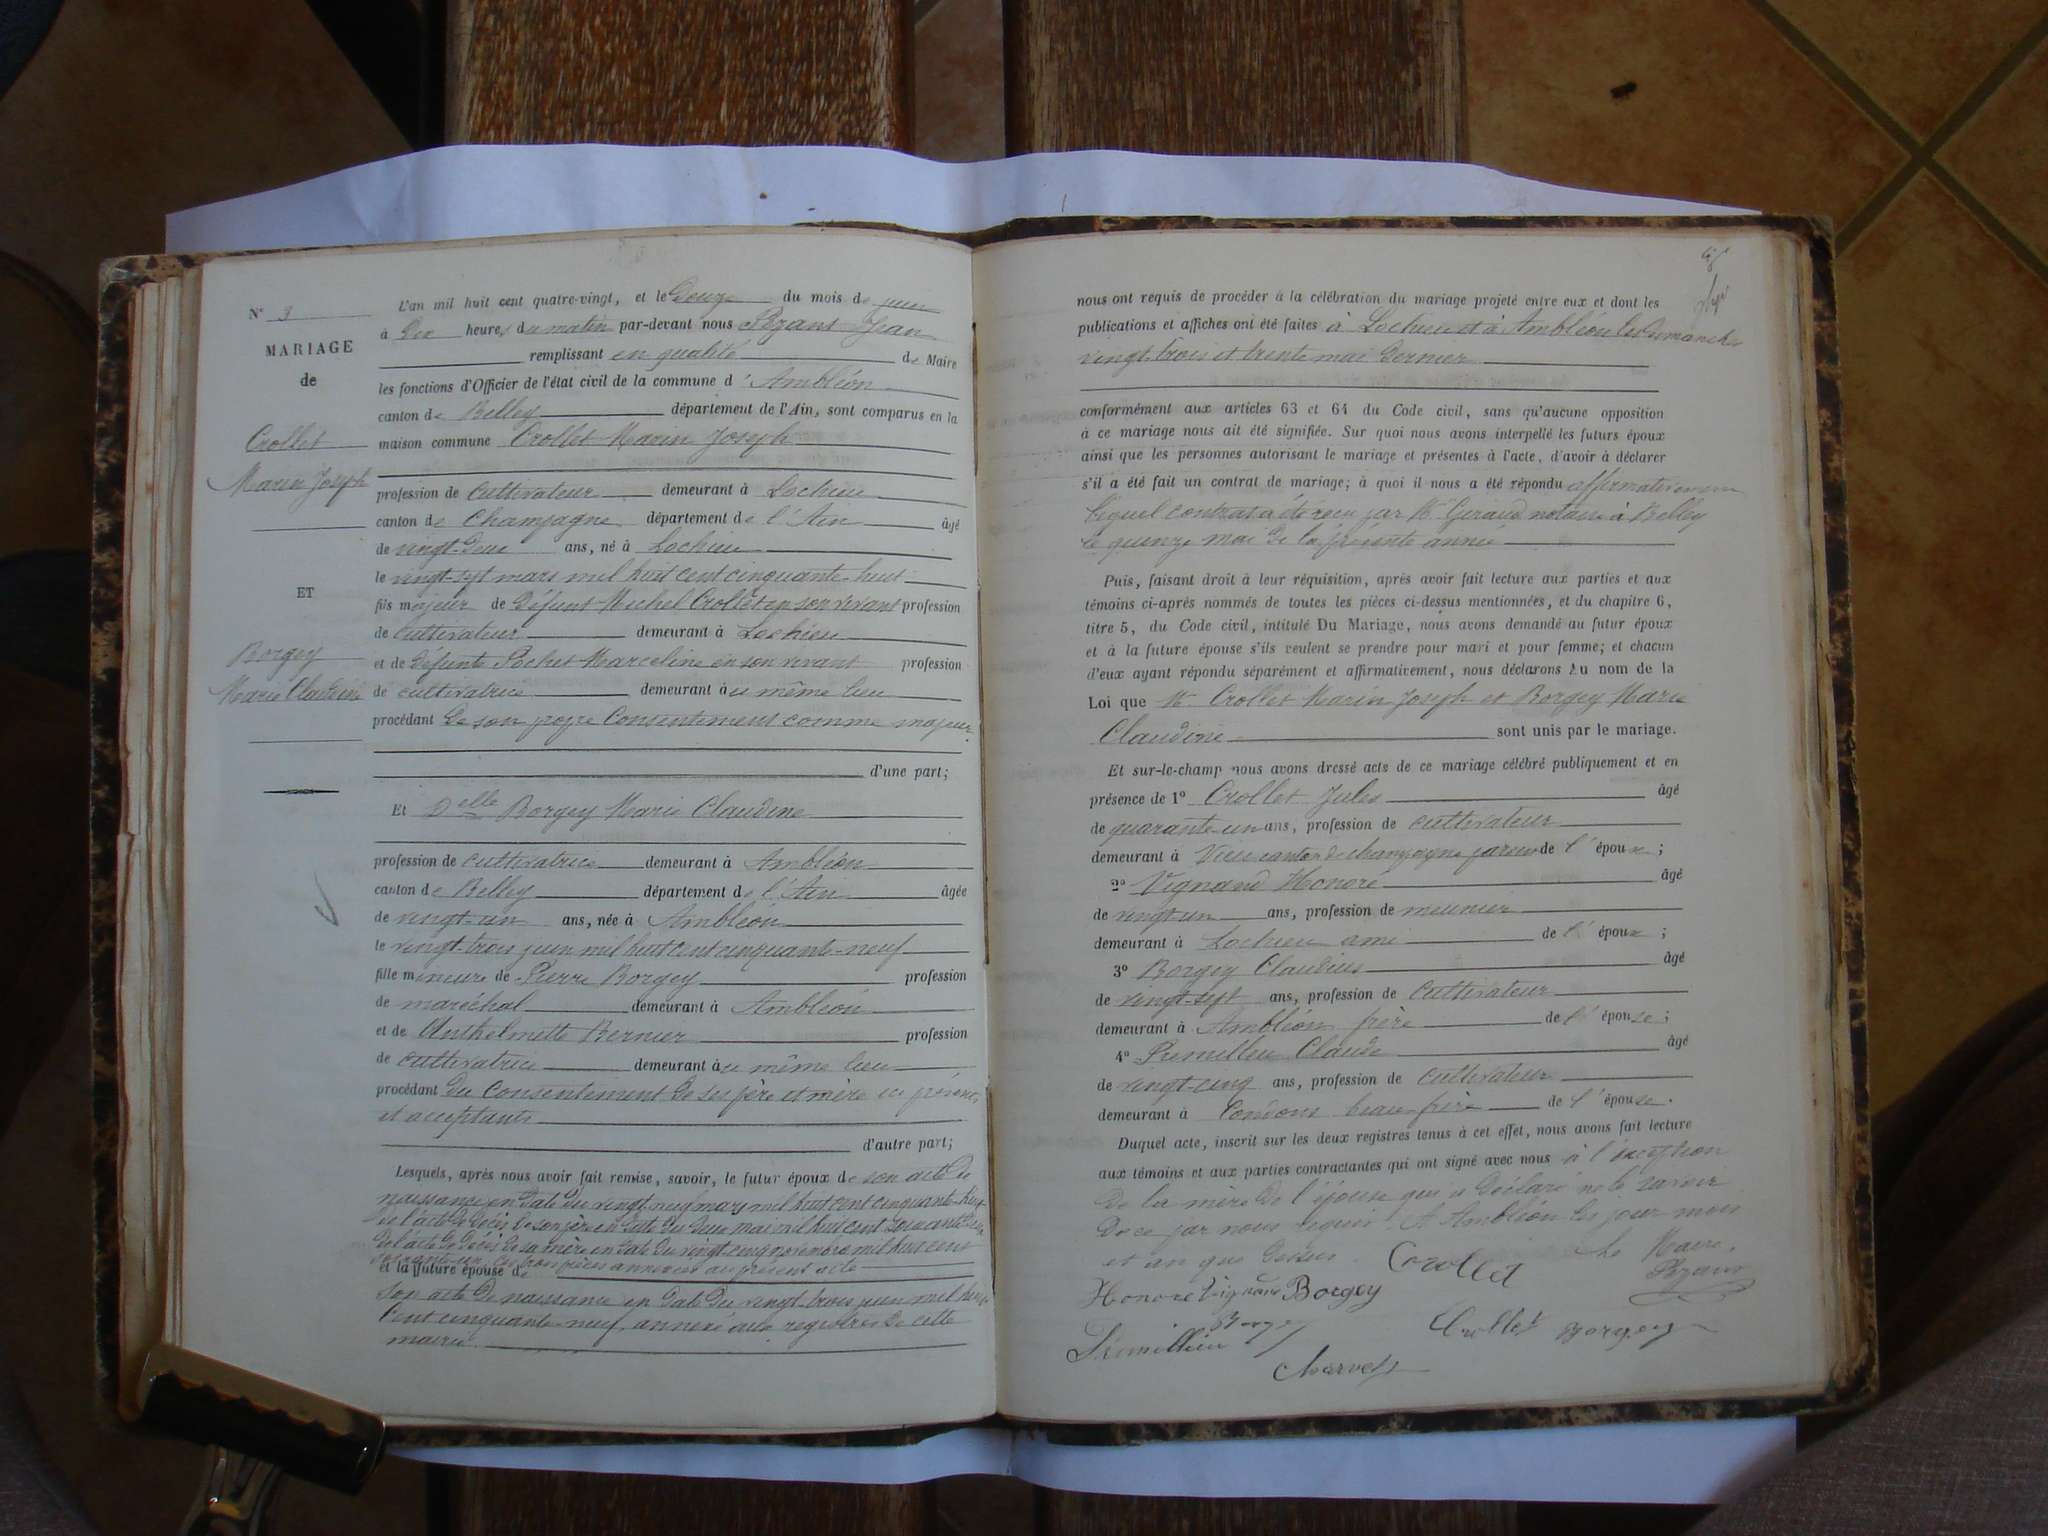 N° 3
MARIAGE
de
Crollet
Marin Joseph
ET
Borgey
Marie Claudine
L'an mil huit cent quatre-vingt, et le Douze du mois de juin
à Dix heures du matin par-devant nous Pezant Jean
remplissant en qualité de Maire
les fonctions d'Officier de l'état civil de la commune d'Ambléon
canton de Belley département de l'Ain, sont comparus en la
maison commune Crollet Marin Joseph
profession de cultivateur demeurant à Lochieu
canton de Champagne département de l'Ain âgé
de vingt-deux ans, né à Lochieu
le vingt-sept mars mil huit cent cinquante-huit
fils majeur de Défunt Michel Crollet en son vivant profession
de cultivateur demeurant à Lochieu
et de Défunte Pochet Marceline en son vivant profession
de cultivatrice demeurant au même lieu
procédant De son propre Consentement comme majeur
d'une part;
Et Delle Borgey Marie Claudine
profession de cultivatrice demeurant à Ambléon
canton de Belley département de l'Ain âgée
de vingt-un ans, née à Ambléon
le vingt-trois juin mil huit cent cinquante-neuf
fille mineure de Pierre Borgey profession
de maréchal demeurant à Ambléon
et de Anthelmette Bernier profession
de cultivatrice demeurant au même lieu
procédant Du Consentement De ses père et mère ici présents
et acceptants
d'autre part;
Lesquels, après nous avoir fait remise, savoir, le futur époux de son acte De
naissance en Date Du vingt neuf mars mil huit cent cinquante-huit
De l'acte De Décès De son père en Date Du Deux mai mil huit cent soixante
De l'acte De Décès De sa mère en Date Du vingt-cinq novembre mil huit cent
soixante-un, ces trois pièces annexées au présent acte
et la future épouse de
Son acte De naissance en Date Du vingt-trois juin mil huit
Cent cinquante-neuf, annexé aux registres De cette
mairie.
nous ont requis de procéder à la célébration du mariage projeté entre eux et dont les
publications et affiches ont été faites à Lochieu et à Ambléon les Dimanches
vingt-trois et trente mai Dernier
conformément aux articles 63 et 64 du Code civil, sans qu'aucune opposition
à ce mariage nous ait été signifiée. Sur quoi nous avons interpellé les futurs époux
ainsi que les personnes autorisant le mariage et présentes à l'acte, d'avoir à déclarer
s'il a été fait un contrat de mariage; à quoi il nous a été répondu affirmativement
lequel contrat a été reçu par Me Geraud notaire à Belley
le quinze mai De la présente année
Puis, faisant droit à leur réquisition, après avoir fait lecture aux parties et aux
témoins ci-après nommés de toutes les pièces ci-dessus mentionnées, et du chapitre 6,
titre 5, du Code civil, intitulé Du Mariage, nous avons demandé au futur époux
et à la future épouse s'ils veulent se prendre pour mari et pour femme; et chacun
d'eux ayant répondu séparément et affirmativement, nous déclarons au nom de la
Loi que Mr Crollet Marin Joseph et Borgey Marie
Claudine sont unis par le mariage.
Et sur-le-champ nous avons dressé acte de ce mariage célébré publiquement et en
présence de 1° Crollet Jules âgé
de quarante-un ans, profession de cultivateur
demeurant à Vieu canton de champagne de l'époux;
2° Vignand Honoré âgé
de vingt-un ans, profession de meunier
demeurant à Lochieu ami de l'époux;
3° Borgey Claudius âgé
de vingt-sept ans, profession de Cultivateur
demeurant à Ambléon frère de l'épouse;
4° Premillieu Claude âgé
de vingt-cinq ans, profession de cultivateur
demeurant à Condons beau-frère de l'épouse.
Duquel acte, inscrit sur les deux registres tenus à cet effet, nous avons fait lecture
aux témoins et aux parties contractantes qui ont signé avec nous à l'exception
De la mère De l'épouse qui a Déclaré ne le savoir
De ce par nous requis. A Ambléon les jour mois
et an que Dessus.
Crollet
Le Maire,
Pezant
Honoré Vignand
Borgey
Borgey
Crollet
Borgey
Prémillieu
Charvet